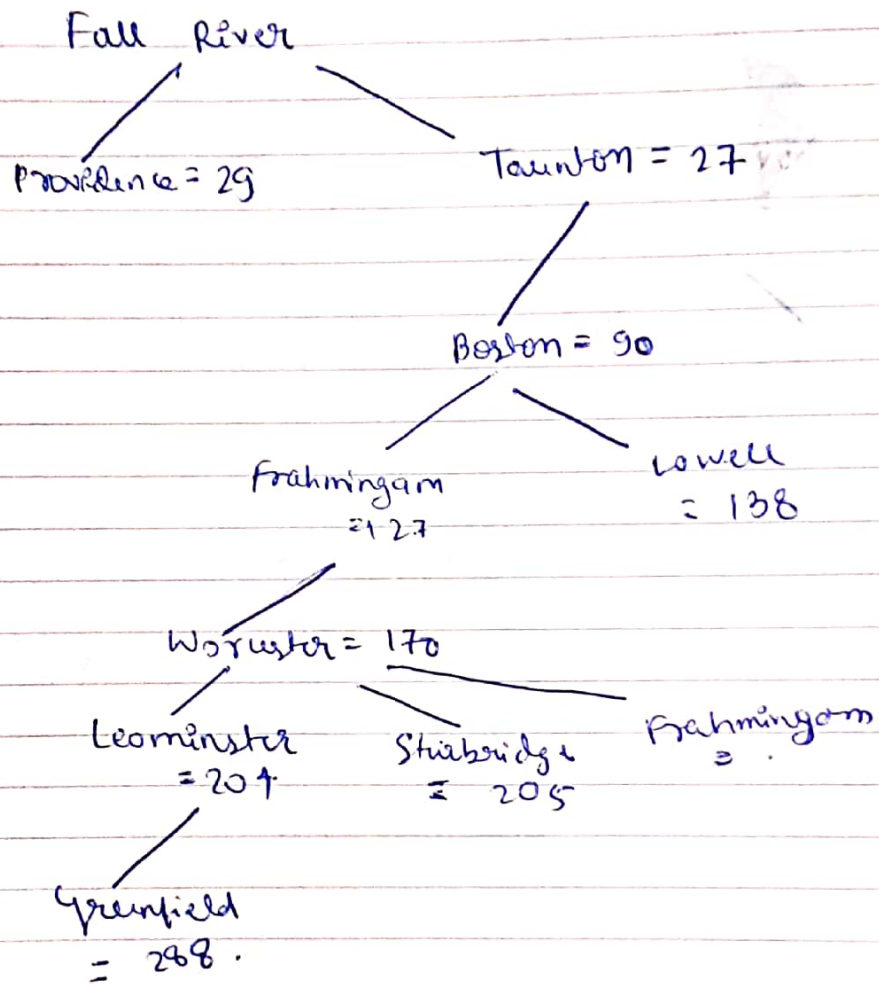 Fall River
Providence = 29
Taunton = 27
Boston = 90
Frahmingam
= 127
Lowell
= 138
Worcuster = 170
Leominster
= 204.
Strabridge
= 205
Frahmingam
= .
Greenfield
= 288.